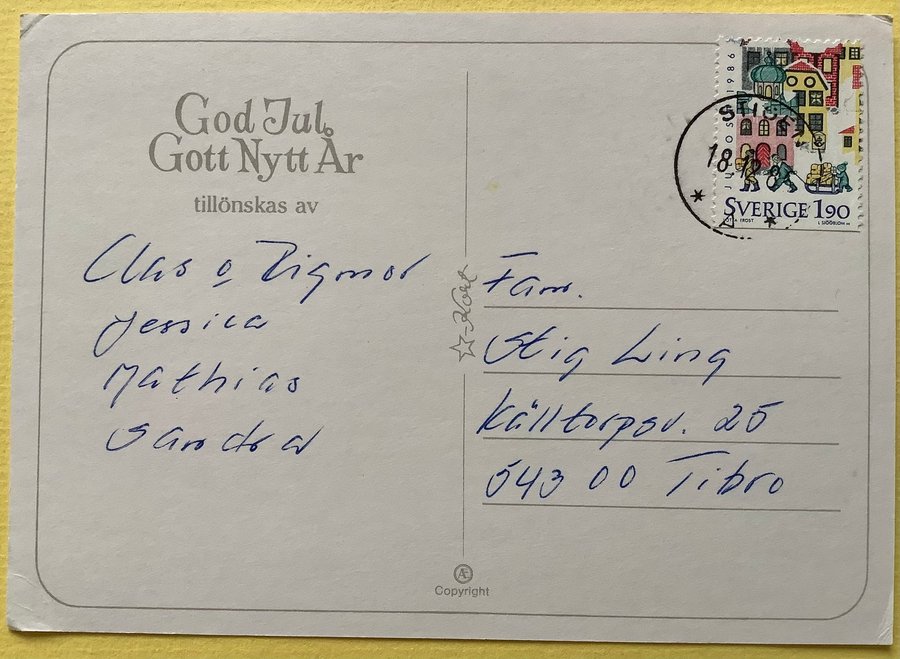 God Jul
Gott Nytt År
tillönskas av
Clas o Digmor
Jessica
Mathias
Sandra
☆-Kort
Æ
Copyright
JULPOST 1986
SVERIGE 1.90
18.12.8
Fam.
Stig Ling
Källtorpsv. 25
543 00 Tibro